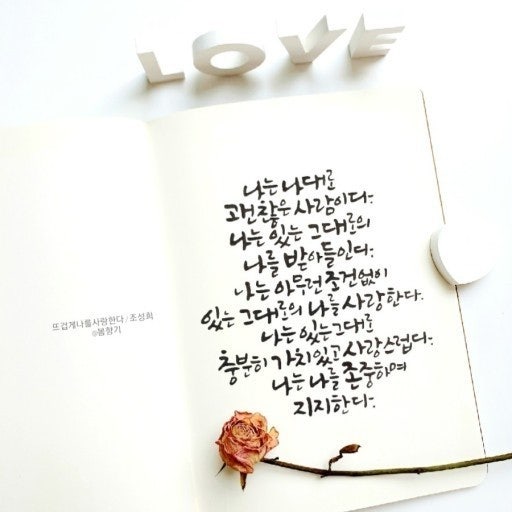 LOVE
나는 나대로
괜찮은 사람이다.
나는 있는 그대로의
나를 받아들인다.
나는 아무런 조건없이
있는 그대로의 나를 사랑한다.
나는 있는그대로
충분히 가치있고 사랑스럽다.
나는 나를 존중하며
지지한다.
뜨겁게나를사랑한다/조성희
@봄향기